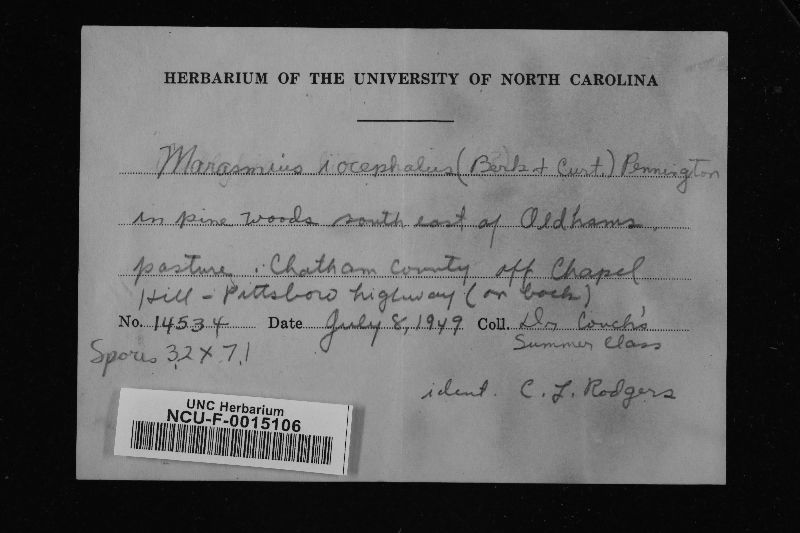 HERBARIUM OF THE UNIVERSITY OF NORTH CAROLINA
Marasmius iocephalus (Berk + Curt.) Pennington
in pine woods south east of Oldhams
pasture. Chatham County off Chapel
Hill - Pittsboro highway (on back)
No. 14534 Date July 8, 1949 Coll. Dr Couch's
Summer Class
Spores 3.2 X 7.1
ident. C. L. Rodgers
UNC Herbarium
NCU-F-0015106